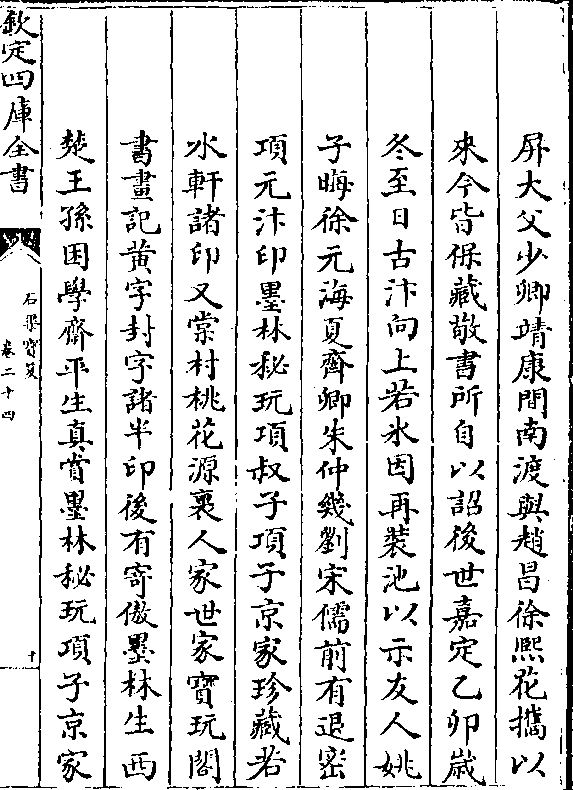 屏大父少卿靖康間南渡與趙昌徐熙花攜以
來今皆保藏敬書所自以詔後世嘉定乙卯歳
冬至日古汴向上若氷因再裝池以示友人姚
子晦徐元海夏齊卿朱仲幾劉宋儒前有退密
項元汴印墨林秘玩項叔子項子京家珍藏若
水軒諸印又棠村桃花源裏人家世家寶玩閣
書畫記黄字封字諸半印後有寄傲墨林生西
楚王孫困學齋平生真賞墨林秘玩項子京家
欽定四庫全書
石渠寳笈
卷二十四
十